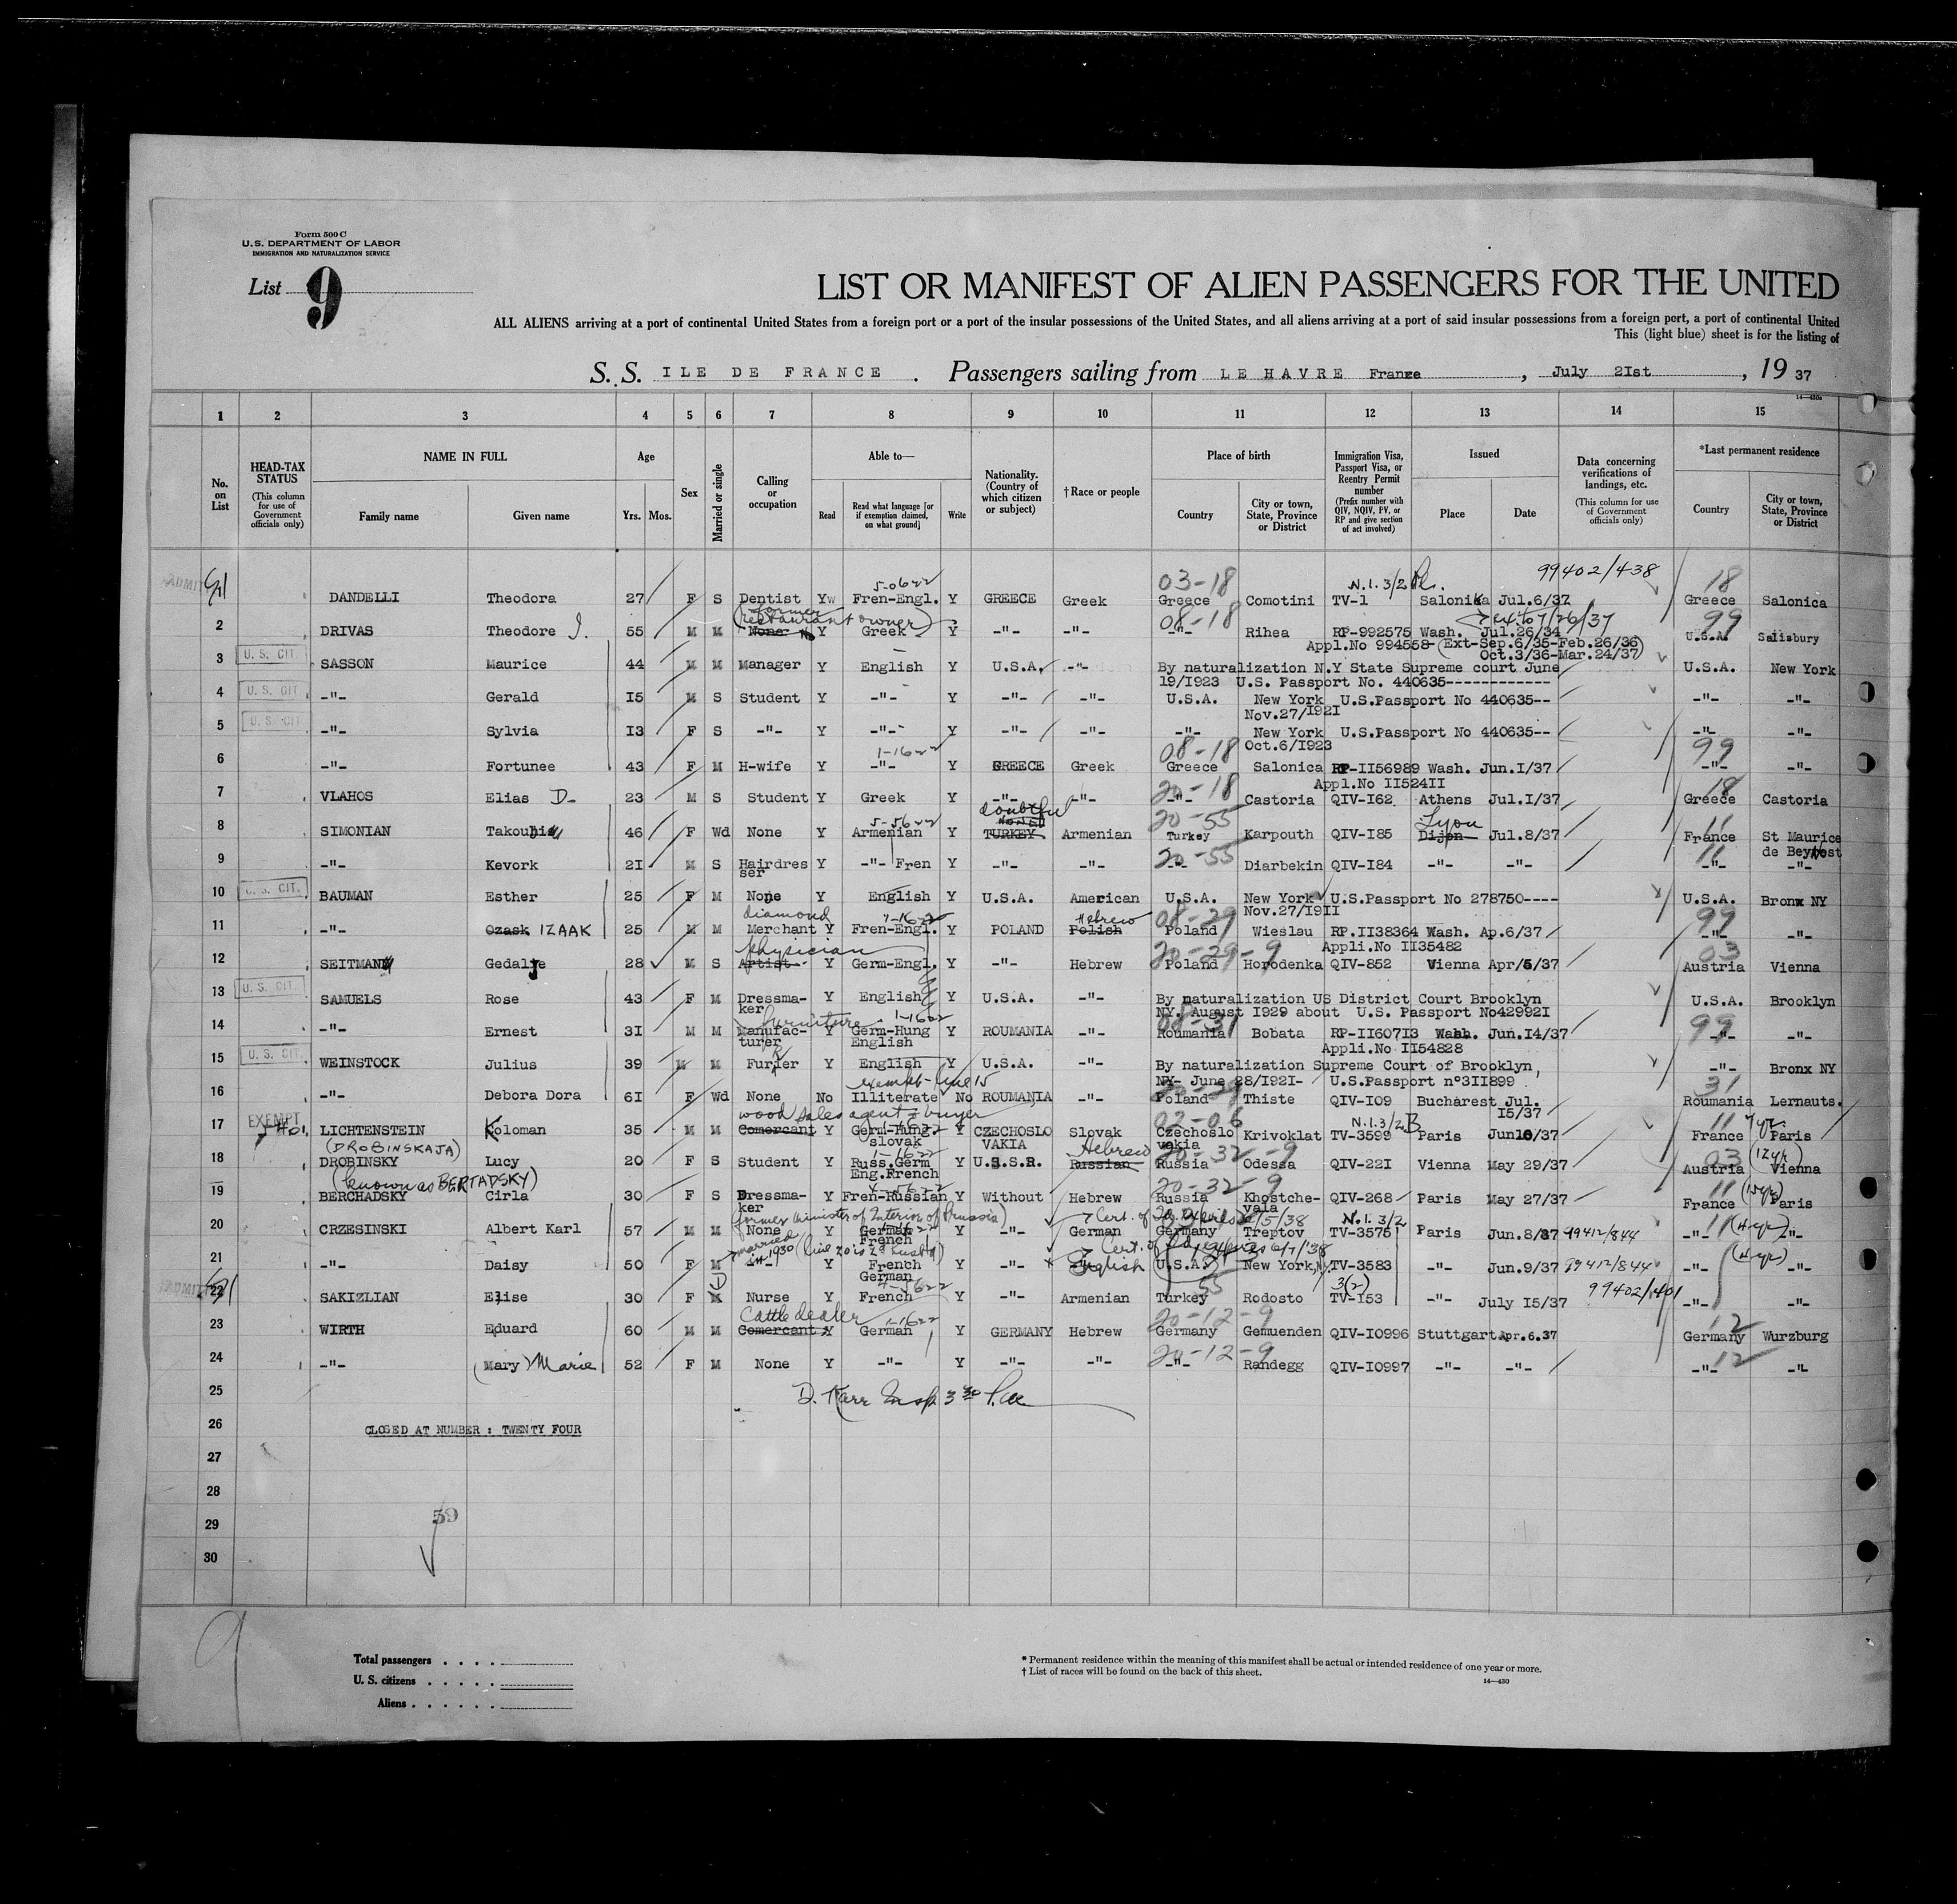 Form 500 C
U. S. DEPARTMENT OF LABOR
IMMIGRATION AND NATURALIZATION SERVICE
List 9
LIST OR MANIFEST OF ALIEN PASSENGERS FOR THE UNITED
ALL ALIENS arriving at a port of continental United States from a foreign port or a port of the insular possessions of the United States, and all aliens arriving at a port of said insular possessions from a foreign port, a port of continental United
This (light blue) sheet is for the listing of
S. S. ILE DE FRANCE . Passengers sailing from LE HAVRE France , July 2Ist , 19 37
14—430a
1 2 3 4 5 6 7 8 9 10 11 12 13 14 15
No. on List
HEAD-TAX STATUS (This column for use of Government officials only)
NAME IN FULL Family name Given name
Age Yrs. Mos.
Sex
Married or single
Calling or occupation
Able to— Read Read what language [or if exemption claimed, on what ground] Write
Nationality. (Country of which citizen or subject)
† Race or people
Place of birth Country City or town, State, Province or District
Immigration Visa, Passport Visa, or Reentry Permit number (Prefix number with QIV, NQIV, PV, or RP and give section of act involved)
Issued Place Date
Data concerning verifications of landings, etc. (This column for use of Government officials only)
*Last permanent residence Country City or town, State, Province or District
5-0622 03-18 N.I. 3/2 99402/438 18
DANDELLI Theodora 27 F S Dentist Y Fren-Engl. Y GREECE Greek Greece Comotini TV-1 Salonika Jul.6/37 Greece Salonica
(former restaurant owner) 08-18 99
2 DRIVAS Theodore J. 55 M M None Y Greek Y -"- -"- -"- Rihea RP-992575 Wash. Jul.26/34 U.S.A. Salisbury
Appl.No 994558-(Ext-Sep.6/35-Feb.26/36)
Oct.3/36-Mar.24/37)
3 U. S. CIT. SASSON Maurice 44 M M Manager Y English Y U.S.A. -"- By naturalization N.Y State Supreme court June U.S.A. New York
19/I923 U.S. Passport No. 440635------------
4 U. S. CIT. -"- Gerald I5 M S Student Y -"- Y -"- -"- U.S.A. New York U.S.Passport No 440635-- -"- -"-
Nov.27/I92I
5 U. S. CIT. -"- Sylvia I3 F S -"- Y -"- Y -"- -"- -"- New York U.S.Passport No 440635-- -"- -"-
1-1622 08-18 Oct.6/I923 99
6 -"- Fortunee 43 F M H-wife Y -"- Y GREECE Greek Greece Salonica RP-II56989 Wash. Jun.I/37 -"- -"-
20-18 Appl.No II524II 18
7 VLAHOS Elias D- 23 M S Student Y Greek Y -"- -"- -"- Castoria QIV-I62 Athens Jul.I/37 Greece Castoria
5-5622 doubtful 20-55 Lyon 11
8 SIMONIAN Takouhi 46 F Wd None Y Armenian Y TURKEY Armenian Turkey Karpouth QIV-I85 Dijon Jul.8/37 France St Maurice
20-55 11 de Beynost
9 -"- Kevork 2I M S Hairdres Y -"- Fren Y -"- -"- -"- Diarbekin QIV-I84 -"- -"- -"-
ser
10 U. S. CIT. BAUMAN Esther 25 F M None Y English Y U.S.A. American U.S.A. New York U.S.Passport No 278750---- U.S.A. Bronx NY
diamond Hebrew 08-29 Nov.27/I9II 99
11 -"- Ozask IZAAK 25 M M Merchant Y Fren-Engl. Y POLAND Polish Poland Wieslau RP.II38364 Wash. Ap.6/37 -"- -"-
physician 20-29-9 Appli.No II35482 03
12 SEITMANN Gedalje 28 M S Artist Y Germ-Engl. Y -"- Hebrew Poland Horodenka QIV-852 Vienna Apr/5/37 Austria Vienna
13 U. S. CIT. SAMUELS Rose 43 F M Dressma- Y English Y U.S.A. -"- By naturalization US District Court Brooklyn U.S.A. Brooklyn
ker NY. August I929 about U.S. Passport No42992I
furniture 1-1622 08-31 99
14 -"- Ernest 3I M M Manufac- Y Germ-Hung Y ROUMANIA -"- Roumania Bobata RP-II607I3 Wash. Jun.I4/37 -"-
turer English Appli.No II54828
15 U. S. CIT. WEINSTOCK Julius 39 M M Furier Y English Y U.S.A. By naturalization Supreme Court of Brooklyn, -"- Bronx NY
exempt- line 15 NY- June 28/I92I- U.S.Passport n°3II899 31
16 -"- Debora Dora 6I F Wd None No Illiterate No ROUMANIA -"- Poland Thiste QIV-IO9 Bucharest Jul. Roumania Lernauts.
I5/37
EXEMPT wood sales agent & buyer 02-06 N.I. 3/2 11 7 yr
17 LICHTENSTEIN Koloman 35 M M Comercant Y Germ-Hung. Y CZECHOSLO Slovak Czechoslo Krivoklat TV-3599 Paris Jun16/37 France Paris
(DROBINSKAJA) slovak VAKIA vakia
1-1622 Hebrew 20-32-9 03 (12yr)
18 DROBINSKY Lucy 20 F S Student Y Russ.Germ Y U.S.S.R. Russian Russia Odessa QIV-22I Vienna May 29/37 Austria Vienna
(known as BERTADSKY) Eng.French 20-32-9 11
19 BERCHADSKY Cirla 30 F S Dressma- Y Fren-Russian Y Without Hebrew Russia Khostche- QIV-268 Paris May 27/37 France Paris
ker vala
(former Minister of Interior of Prussia) N.I. 3/2
20 CRZESINSKI Albert Karl 57 M M None Y German Y -"- German Germany Treptov TV-3575 Paris Jun.8/37 99412/844 -"- (4 yr) -"-
French
married in 1930 (line 20 is 2d husb'd)
21 -"- Daisy 50 F M -"- Y French Y -"- English U.S.A. New York, TV-3583 -"- Jun.9/37 99412/844 -"- (4 yr) -"-
German
D 55 3(2) 99402/401
22 SAKIZLIAN Elise 30 F Nurse Y French Y -"- Armenian Turkey Rodosto TV-I53 -"- July I5/37 -"- -"-
Cattle dealer 1-1622 20-12-9 12
23 WIRTH Eduard 60 M M Comercant Y German Y GERMANY Hebrew Germany Gemuenden QIV-IO996 Stuttgart Apr.6.37 Germany Wurzburg
20-12-9 12
24 -"- (Mary) Marie 52 F M None Y -"- Y -"- -"- -"- Randegg QIV-IO997 -"- -"- -"- -"-
25 D. Karr Insp.
26 CLOSED AT NUMBER : TWENTY FOUR
27
28
29 59
30
9
Total passengers . . . .
U. S. citizens . . . . .
Aliens . . . . . .
* Permanent residence within the meaning of this manifest shall be actual or intended residence of one year or more.
† List of races will be found on the back of this sheet.
14—430